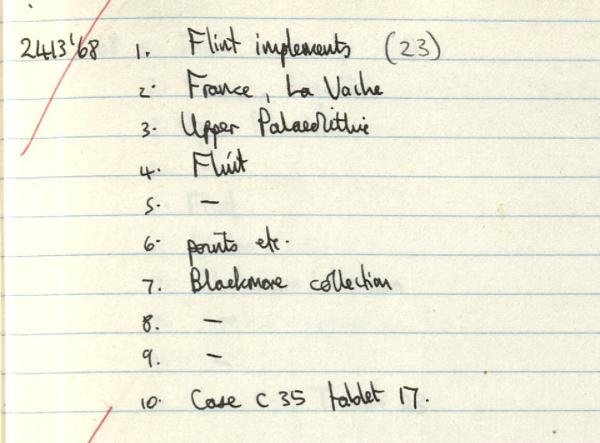 2413'68 1. Flint implements (23)
2. France, La Vache
3. Upper Palaeolithic
4. Flint
5. –
6. points etc.
7. Blackmore collection
8. –
9. –
10. Case C 35 tablet 17.